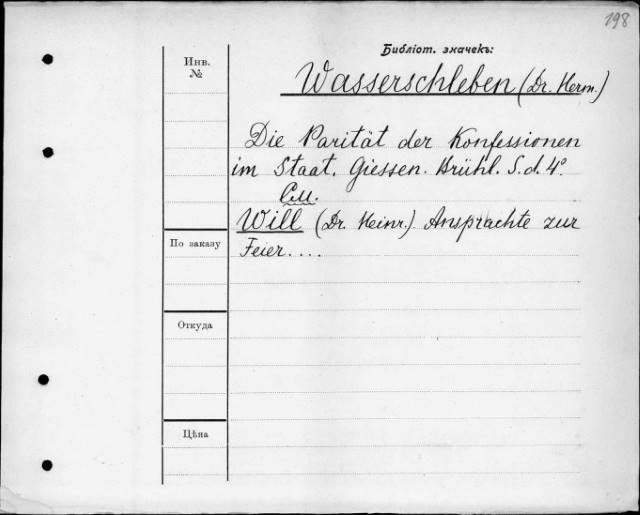 198
Библіот. значекъ:
Инв.
№
Wasserschleben (Dr. Herm.)
Die Parität der Konfessionen
im Staat. Giessen. Brühl. S. d. 4°.
См.
Will (Dr. Heinr.) Ansprachte zur
Feier....
По заказу
Откуда
Цѣна